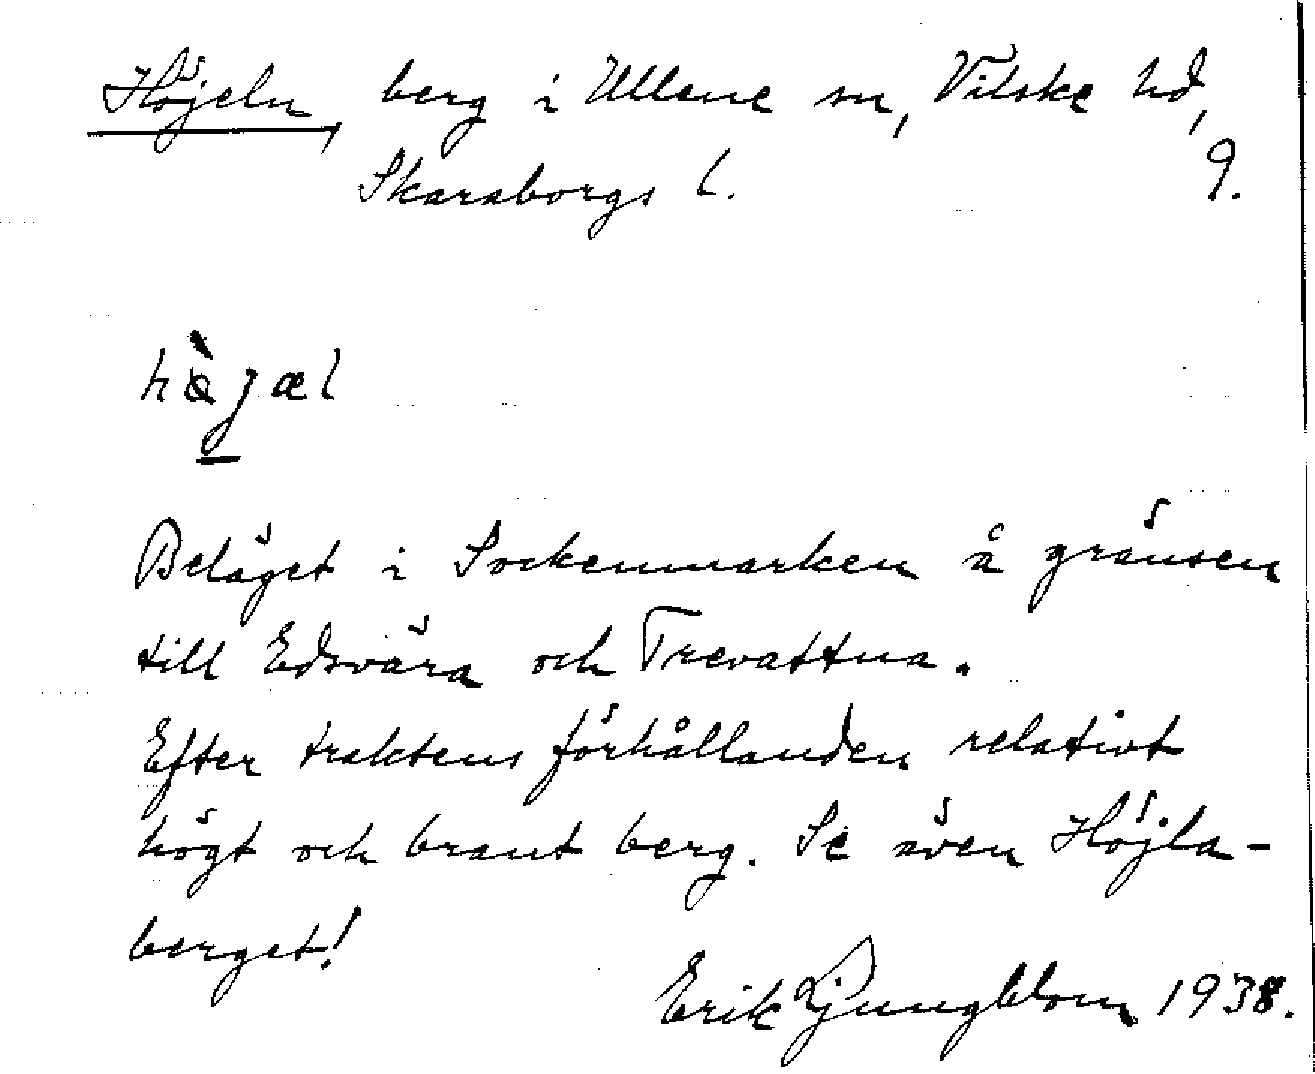 Höjeln, berg i Ullene sn, Vilske hd,
Skaraborgs l. 9.
hö̀jæl
Beläget i Sockenmarken å gränsen
till Edsvära och Trevattna.
Efter traktens förhållanden relativt
högt och brant berg. Se även Höjla-
berget!
Erik Ljungblom 1938.